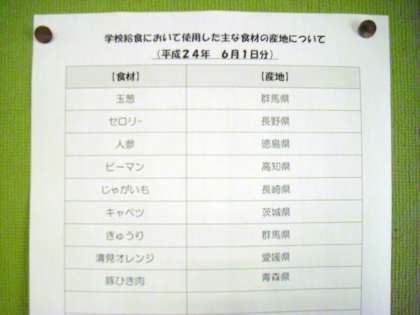 学校給食において使用した主な食材の産地について
(平成24年 6月1日分)
【食材】 【産地】
玉葱 群馬県
セロリー 長野県
人参 徳島県
ピーマン 高知県
じゃがいも 長崎県
キャベツ 茨城県
きゅうり 群馬県
清見オレンジ 愛媛県
豚ひき肉 青森県